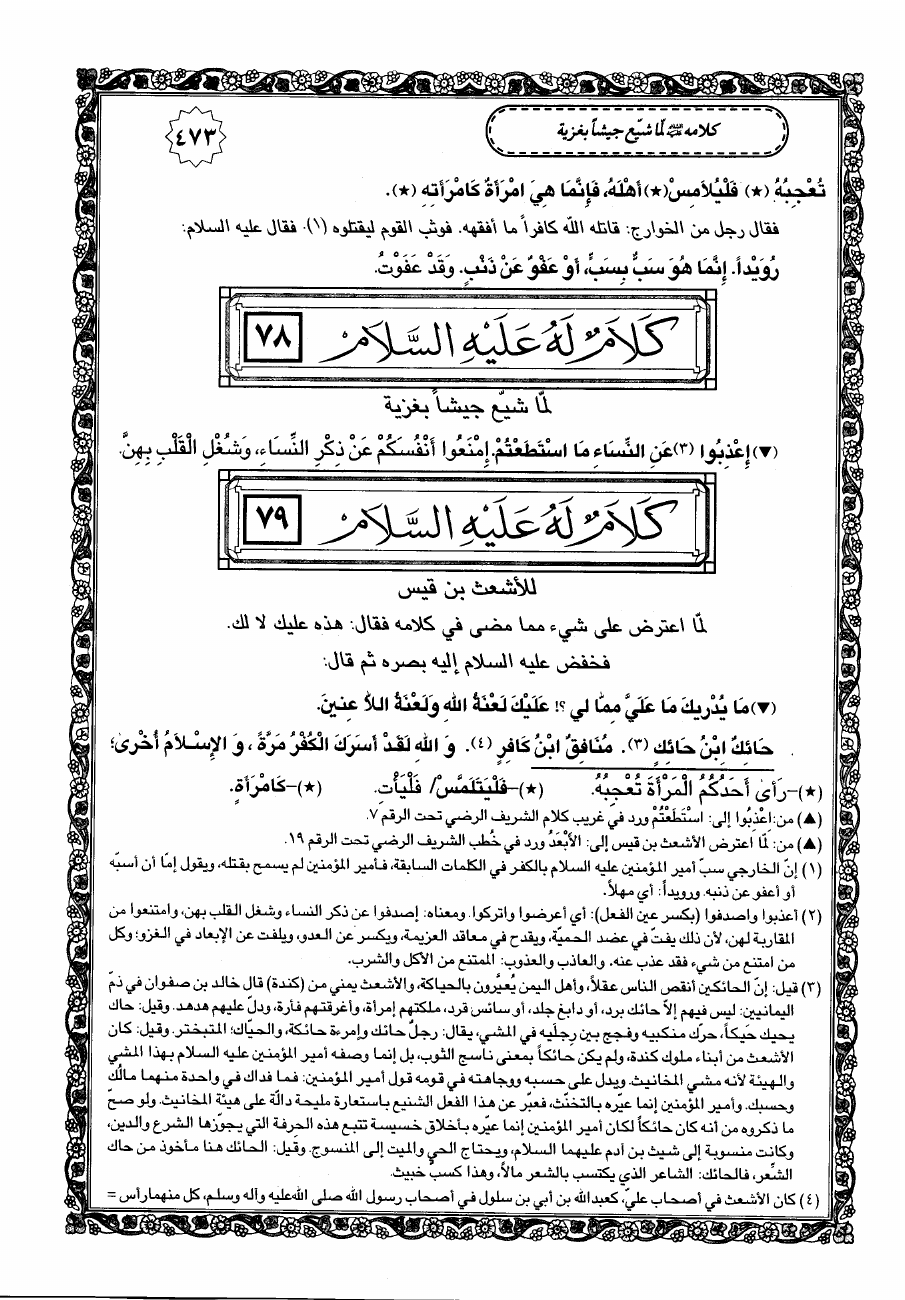 كلامه عليه السلام لمّا شيّع جيشاً بغزية
٤٧٣
تُعْجِبُهُ (★) فَلْيُلاَمِسْ(★) أَهْلَهُ، فَإِنَّمَا هِيَ امْرَأَةٌ كَامْرَأَتِهِ (★).
فقال رجل من الخوارج: قاتله اللّه كافراً ما أفقهه. فوثب القوم ليقتلوه (١). فقال عليه السلام:
رُوَيْداً. إِنَّمَا هُوَ سَبٌّ بِسَبٍّ، أَوْ عَفْوٌ عَنْ ذَنْبٍ. وَقَدْ عَفَوْتُ.
كَلَامٌ لَهُ عَلَيْهِ السَّلَامُ ٧٨
لمّا شيّع جيشاً بغزية
(▼) إِعْذِبُوا (٣) عَنِ النِّسَاءِ مَا اسْتَطَعْتُمْ. إِمْنَعُوا أَنْفُسَكُمْ عَنْ ذِكْرِ النِّسَاءِ، وَشُغْلِ الْقَلْبِ بِهِنَّ.
كَلَامٌ لَهُ عَلَيْهِ السَّلَامُ ٧٩
للأشعث بن قيس
لمّا اعترض على شيء مما مضى في كلامه فقال: هذه عليك لا لك.
فخفض عليه السلام إليه بصره ثم قال:
(▼) مَا يُدْرِيكَ مَا عَلَيَّ مِمَّا لي ؟! عَلَيْكَ لَعْنَةُ اللهِ وَلَعْنَةُ اللاَّعِنينَ.
حَائِكٌ ابْنُ حَائِكٍ (٣). مُنَافِقٌ ابْنُ كَافِرٍ (٤). وَ اللهِ لَقَدْ أَسَرَكَ الْكُفْرُ مَرَّةً ، وَ الإِسْلاَمُ أُخْرىٰ؛
(★)–رَأىٰ أَحَدُكُمُ الْمَرْأَةَ تُعْجِبُهُ. (★)–فَلْيَتَلَمَّسْ/ فَلْيَأْتِ. (★)–كَامْرَأَةٍ.
(▲) من: اعْذِبُوا إلى: اسْتَطَعْتُمْ ورد في غريب كلام الشريف الرضي تحت الرقم ٧.
(▲) من: لمّا اعترض الأشعث بن قيس إلى: الأَبْعَدُ ورد في خُطب الشريف الرضي تحت الرقم ١٩.
(١) إنّ الخارجي سبّ أمير المؤمنين عليه السلام بالكفر في الكلمات السابقة، فأمير المؤمنين لم يسمح بقتله، ويقول إمّا أن أسبّه
أو أعفو عن ذنبه. ورويداً: أي مهلاً.
(٢) أعذبوا واصدفوا (بكسر عين الفعل): أي أعرضوا واتركوا. ومعناه: إصدفوا عن ذكر النساء وشغل القلب بهن، وامتنعوا من
المقاربة لهن، لأن ذلك يفتّ في عضد الحميّة، ويقدح في معاقد العزيمة، ويكسر عن العدو، ويلفت عن الإبعاد في الغزو؛ وكل
من امتنع من شيء فقد عذب عنه. والعاذب والعذوب: الممتنع من الأكل والشرب.
(٣) قيل: إنّ الحائكين أنقص الناس عقلاً، وأهل اليمن يُعيَّرون بالحياكة، والأشعث يمني من (كندة) قال خالد بن صفوان في ذمّ
اليمانيين: ليس فيهم إلاّ حائك برد، أو دابغ جلد، أو سائس قرد، ملكتهم إمرأة، وأغرقتهم فأرة، ودلّ عليهم هدهد. وقيل: حاك
يحيك حَيكاً، حرّك منكبيه وفحج بين رجليه في المشي، يقال: رجلٌ حائك وإمرءة حائكة، والحيّاك؛ المتبختر. وقيل: كان
الأشعث من أبناء ملوك كندة، ولم يكن حائكاً بمعنى ناسج الثوب، بل إنما وصفه أمير المؤمنين عليه السلام بهذا المشي
والهيئة لأنه مشي المخانيث. ويدل على حسبه ووجاهته في قومه قول أمير المؤمنين: فما فداك في واحدة منهما مالُك
وحسبك. وأمير المؤمنين إنما عيّره بالتخنّث، فعبّر عن هذا الفعل الشنيع باستعارة مليحة دالّة على هيئة المخانيث. ولو صحّ
ما ذكروه من أنه كان حائكاً لكان أمير المؤمنين إنما عيّره بأخلاق خسيسة تتبع هذه الحِرفة التي يجوّزها الشرع والدين،
وكانت منسوبة إلى شيث بن آدم عليهما السلام، ويحتاج الحي والميت إلى المنسوج. وقيل: الحائك هنا مأخوذ من حاك
الشِّعر، فالحائك: الشاعر الذي يكتسب بالشعر مالاً، وهذا كسبٌ خبيث.
(٤) كان الأشعث في أصحاب عليّ، كعبدالله بن أبي بن سلول في أصحاب رسول الله صلى الله عليه وآله وسلم، كل منهما رأس =